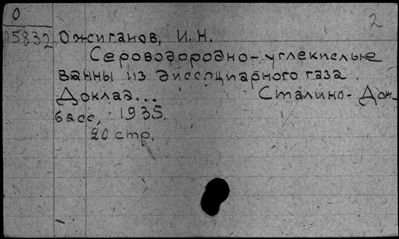 О
2
05832 Ожиганов, И. Н.
Сероводородно-углекислые
ванны из диссоциарного газа.
Доклад... Сталино-Дон-
басс, 1935.
20 стр.